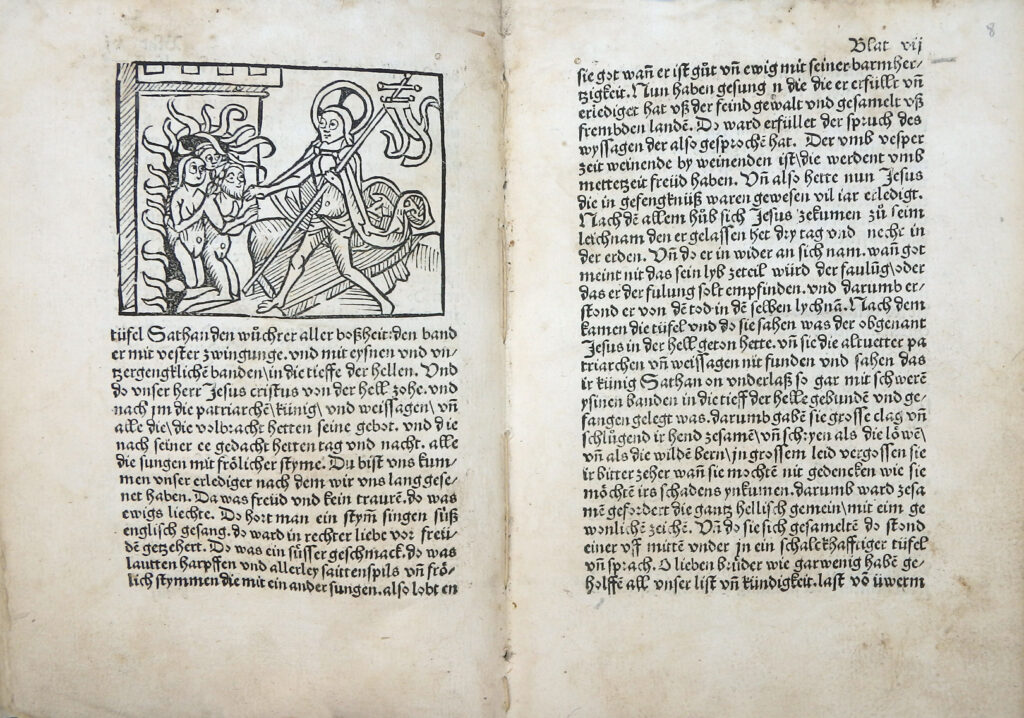 tüfel Sathan den wůchrer aller boßheit: den band
er mit vester zwingunge. vnd mit eysnen vnd vn⸗
zergengklichē banden\ in die tieffe der hellen. Vnd
do vnser herr Jesus cristus von der hell zohe. vnd
nach jm die patriarchē\ künig\ vnd weissagen\ vn̄
alle die\ die volbracht hetten seine gebot. vnd die
nach seiner ee gedacht hetten tag vnd nacht. alle
die sungen mit frölicher styme. Du bist vns kum⸗
men vnser erlediger nach dem wir vns lang gese⸗
net haben. Da was freüd vnd kein traurē. do was
ewigs liechte. Do hort man ein stym̄ singen süß
englisch gesang. do ward in rechter liebe vor freü⸗
dē getzehert. Do was ein süsser geschmack. do was
lautten harpffen vnd allerley saittenspils vn̄ frö⸗
lich stymmen die mit ein ander sungen. also lobt en
8
Blat vij
sie got wan̄ er ist gůt vn̄ ewig mit seiner barmher⸗
tzigkeit. Nun haben gesung n die die er erfüllt vn̄
erlediget hat vß der feind gewalt vnd gesamelt vß
frembden landē. Do ward erfüllet der spruch des
wyssagen der also gesprochē hat. Der vmb vesper
zeit weinende by weinenden ist\ die werdent vmb
mettetzeit freüd haben. Vn̄ also hette nun Jesus
die in gefengknüß waren gewesen vil iar erledigt.
Nach dē allem hůb sich Jesus zekumen zů seim
leichnam den er gelassen het dry tag vnd necht in
der erden. Vn̄ do er in wider an sich nam. wan̄ got
meint nit das sein lyb zeteil würd der faulūg\ oder
das er der fulung solt empfinden. vnd darumb er⸗
stond er von dē tod in dē selben lychnā. Nach dem
kamen die tüfel vnd do sie sahen was der obgenant
Jesus in der hell geton hette. vn̄ sie die altuetter pa
triarchen vn̄ weissagen nit funden vnd sahen das
ir künig Sathan on vnderlaß so gar mit schwerē
ysinen banden in die tieff der helle gebunden vnd ge⸗
fangen gelegt was. darumb gabē sie grosse clag vn̄
schlůgend ir hend zesamē\ vn̄ schryen als die löwē\
vn̄ als die wildē bern\ jn grossem leid vergossen sie
ir bitter zeher wan̄ sie mochtē nit gedencken wie sie
möchtē irs schadens ynkumen. darumb ward zesa
mē gefordert die gantz hellisch gemein\ mit eim ge
wonlichē zeichē. Vn̄ do sie sich gesameltē do stond
einer vff mittē vnder jn ein schalckhafftiger tüfel
vn̄ sprach. O lieben brüder wie gar wenig habē ge⸗
holffē all vnser list vn̄ kündigkeit. last vō üwerm